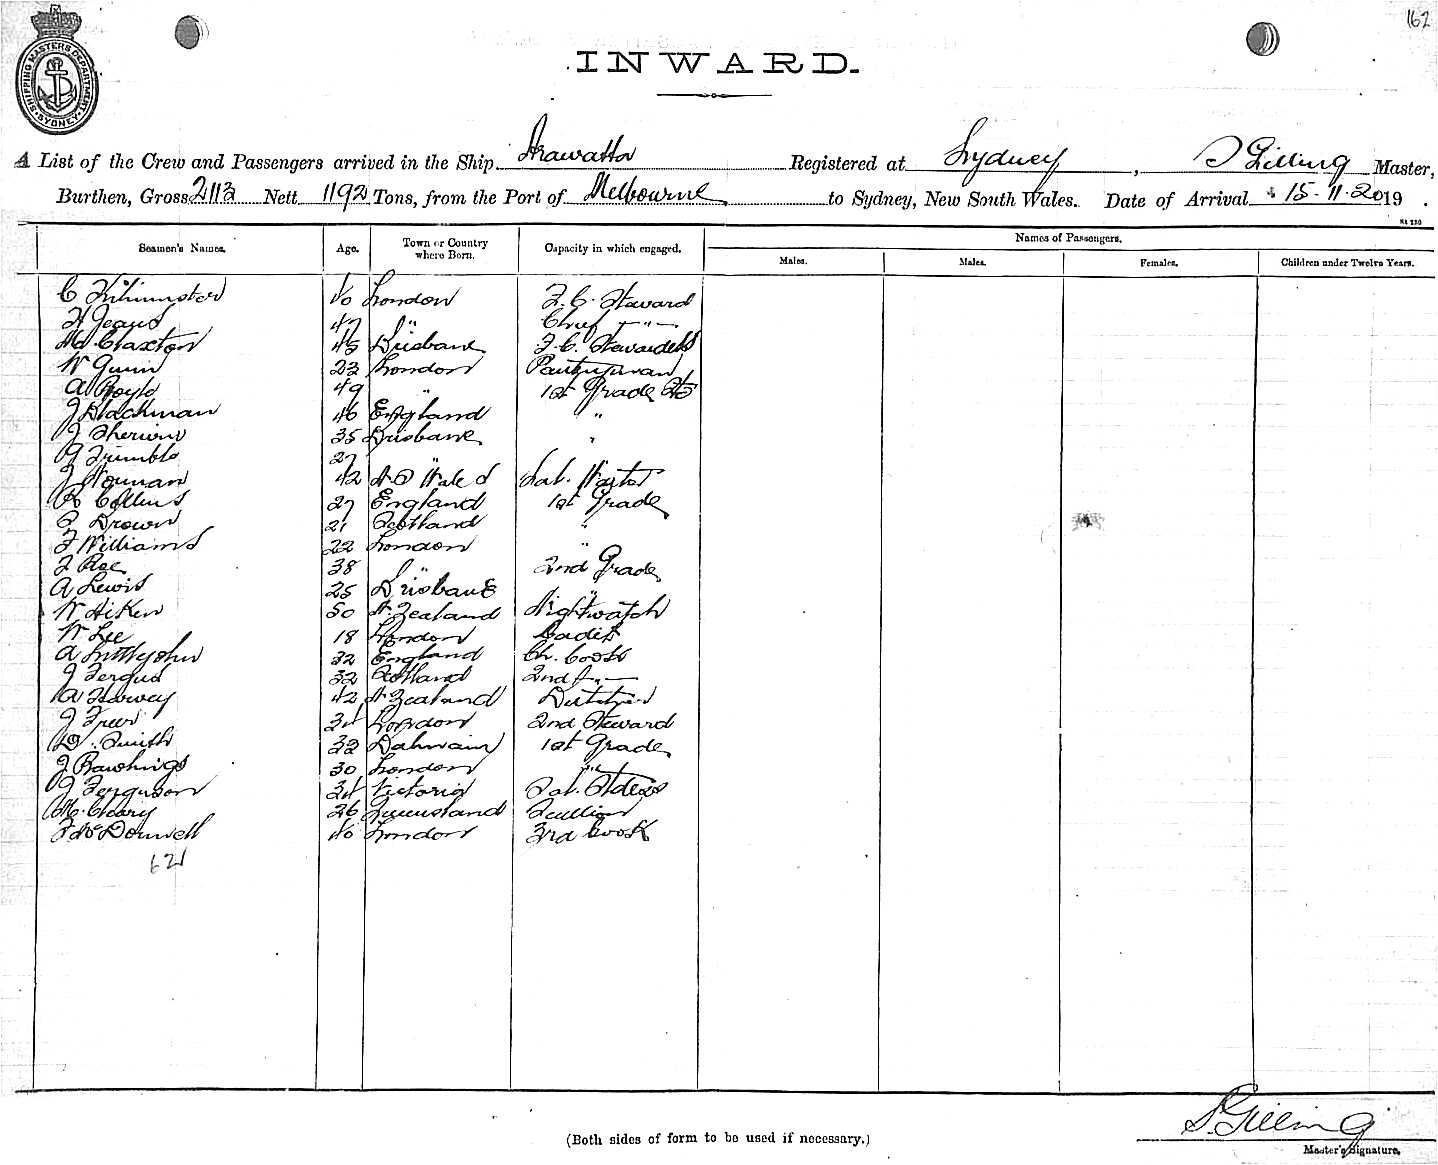 162
SHIPPING MASTERS DEPARTMENT SYDNEY
INWARD.
A List of the Crew and Passengers arrived in the Ship Arawatta Registered at Sydney, Gilling Master,
Burthen, Gross 2113 Nett 1192 Tons, from the Port of Melbourne to Sydney, New South Wales. Date of Arrival 15-11-20 19 .
St 230
Seamen's Names. Age. Town or Country where Born. Capacity in which engaged. Names of Passengers.
Males. Males. Females. Children under Twelve Years.
C 40 London F.C. Steward
H Jeans 47 " Chief — " —
Claxton 45 Brisbane F.C. Stewardess
W Gunn 23 London Pantryman
A Boyle 49 " 1st Grade
J Blackman 46 England "
J Sherwin 35 Brisbane "
Trimble 27 "
J Norman 42 N S Wales Sal. Waiter
R Collins 27 England 1st Grade
Brown 21 Scotland "
F Williams 22 London "
Rae 38 " 2nd Grade
A Lewis 25 Brisbane "
W Aiken 50 N. Zealand Nightwatch
W Lee 18 London Cadet
A Littlejohn 32 England Ch. Cook
J Fergus 32 Scotland 2nd — " —
A Harvey 42 N Zealand
J 34 London 2nd Steward
D. Smith 32 Balmain 1st Grade
J Rawlings 30 London "
J Ferguson 34 Victoria Sal. Stdess
M. Cleary 26 Queensland Scullion
F McDonnell 40 London 3rd Cook
62
(Both sides of form to be used if necessary.)
Gilling
Master's Signature.